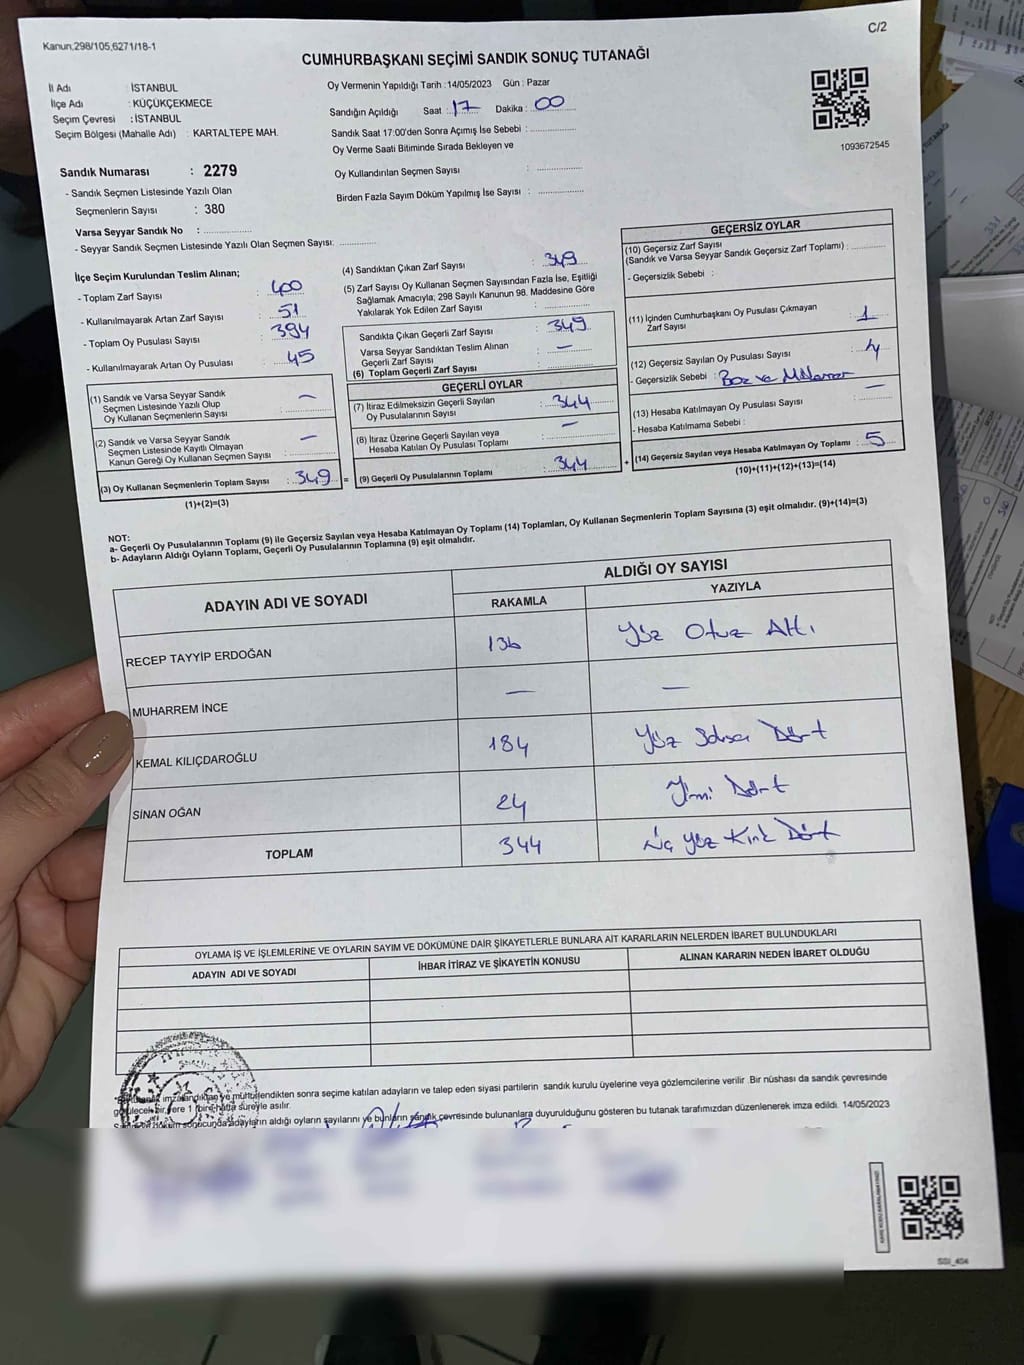 Kanun,298/105,6271/18-1
C/2
CUMHURBAŞKANI SEÇİMİ SANDIK SONUÇ TUTANAĞI
İl Adı : İSTANBUL
İlçe Adı : KÜÇÜKÇEKMECE
Seçim Çevresi : İSTANBUL
Seçim Bölgesi (Mahalle Adı) : KARTALTEPE MAH.
Oy Vermenin Yapıldığı Tarih :14/05/2023 Gün : Pazar
Sandığın Açıldığı Saat : 17 Dakika : 00
Sandık Saat 17:00'den Sonra Açımış İse Sebebi :
Oy Verme Saati Bitiminde Sırada Bekleyen ve
Oy Kullandırılan Seçmen Sayısı :
Birden Fazla Sayım Döküm Yapılmış İse Sayısı :
1093672545
Sandık Numarası : 2279
- Sandık Seçmen Listesinde Yazılı Olan
Seçmenlerin Sayısı : 380
Varsa Seyyar Sandık No :
- Seyyar Sandık Seçmen Listesinde Yazılı Olan Seçmen Sayısı:
İlçe Seçim Kurulundan Teslim Alınan;
- Toplam Zarf Sayısı : 400
- Kullanılmayarak Artan Zarf Sayısı : 51
- Toplam Oy Pusulası Sayısı : 394
- Kullanılmayarak Artan Oy Pusulası : 45
(1) Sandık ve Varsa Seyyar Sandık
Seçmen Listesinde Yazılı Olup
Oy Kullanan Seçmenlerin Sayısı : —
(2) Sandık ve Varsa Seyyar Sandık
Seçmen Listesinde Kayıtlı Olmayan
Kanun Gereği Oy Kullanan Seçmen Sayısı : —
(3) Oy Kullanan Seçmenlerin Toplam Sayısı : 349 =
(1)+(2)=(3)
(4) Sandıktan Çıkan Zarf Sayısı : 349
(5) Zarf Sayısı Oy Kullanan Seçmen Sayısından Fazla İse, Eşitliği
Sağlamak Amacıyla; 298 Sayılı Kanunun 98. Maddesine Göre
Yakılarak Yok Edilen Zarf Sayısı :
Sandıkta Çıkan Geçerli Zarf Sayısı : 349
Varsa Seyyar Sandıktan Teslim Alınan
Geçerli Zarf Sayısı : —
(6) Toplam Geçerli Zarf Sayısı :
GEÇERLİ OYLAR
(7) İtiraz Edilmeksizin Geçerli Sayılan
Oy Pusulalarının Sayısı : 344
(8) İtiraz Üzerine Geçerli Sayılan veya
Hesaba Katılan Oy Pusulası Toplamı : —
(9) Geçerli Oy Pusulalarının Toplamı : 344 +
GEÇERSİZ OYLAR
(10) Geçersiz Zarf Sayısı
(Sandık ve Varsa Seyyar Sandık Geçersiz Zarf Toplamı) :
- Geçersizlik Sebebi :
(11) İçinden Cumhurbaşkanı Oy Pusulası Çıkmayan
Zarf Sayısı : 1
(12) Geçersiz Sayılan Oy Pusulası Sayısı : 4
- Geçersizlik Sebebi :
(13) Hesaba Katılmayan Oy Pusulası Sayısı : —
- Hesaba Katılmama Sebebi :
(14) Geçersiz Sayılan veya Hesaba Katılmayan Oy Toplamı : 5
(10)+(11)+(12)+(13)=(14)
NOT:
a- Geçerli Oy Pusulalarının Toplamı (9) ile Geçersiz Sayılan veya Hesaba Katılmayan Oy Toplamı (14) Toplamları, Oy Kullanan Seçmenlerin Toplam Sayısına (3) eşit olmalıdır. (9)+(14)=(3)
b- Adayların Aldığı Oyların Toplamı, Geçerli Oy Pusulalarının Toplamına (9) eşit olmalıdır.
ADAYIN ADI VE SOYADI
ALDIĞI OY SAYISI
RAKAMLA YAZIYLA
RECEP TAYYİP ERDOĞAN 136 Yüz Otuz Altı
MUHARREM İNCE — —
KEMAL KILIÇDAROĞLU 184 Yüz Seksen Dört
SİNAN OĞAN 24 Yirmi Dört
TOPLAM 344 Üç Yüz Kırk Dört
OYLAMA İŞ VE İŞLEMLERİNE VE OYLARIN SAYIM VE DÖKÜMÜNE DAİR ŞİKAYETLERLE BUNLARA AİT KARARLARIN NELERDEN İBARET BULUNDUKLARI
ADAYIN ADI VE SOYADI İHBAR İTİRAZ VE ŞİKAYETİN KONUSU ALINAN KARARIN NEDEN İBARET OLDUĞU
imzalandıktan ve mühürlendikten sonra seçime katılan adayların ve talep eden siyasi partilerin sandık kurulu üyelerine veya gözlemcilerine verilir .Bir nüshası da sandık çevresinde
görülecek bir yere 1 (bir) hafta süreyle asılır.
adayların aldığı oyların sayılarını ve bunların sandık çevresinde bulunanlara duyurulduğunu gösteren bu tutanak tarafımızdan düzenlenerek imza edildi. 14/05/2023
SSI_404